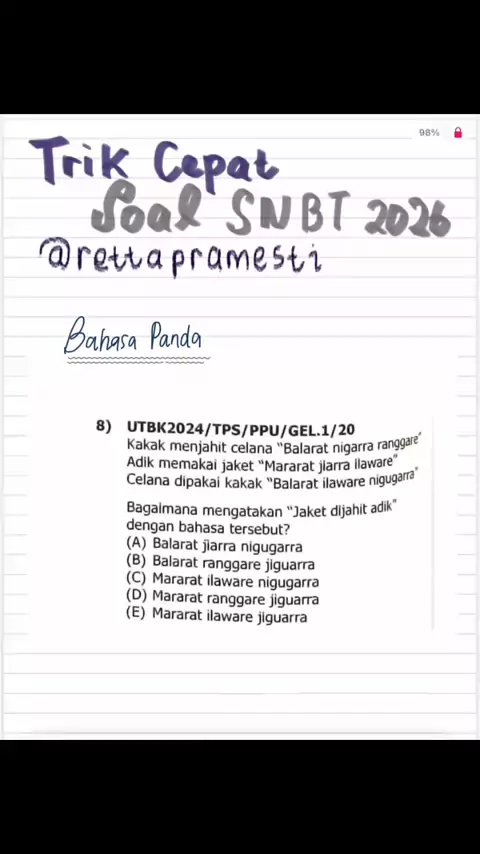 98%
Trik Cepat
Soal SNBT 2026
@rettapramesti
Bahasa Panda
8) UTBK2024/TPS/PPU/GEL.1/20
Kakak menjahit celana "Balarat nigarra ranggare"
Adik memakai jaket "Mararat jiarra ilaware"
Celana dipakai kakak "Balarat ilaware nigugarra"
Bagaimana mengatakan "Jaket dijahit adik"
dengan bahasa tersebut?
(A) Balarat jiarra nigugarra
(B) Balarat ranggare jiguarra
(C) Mararat ilaware nigugarra
(D) Mararat ranggare jiguarra
(E) Mararat ilaware jiguarra